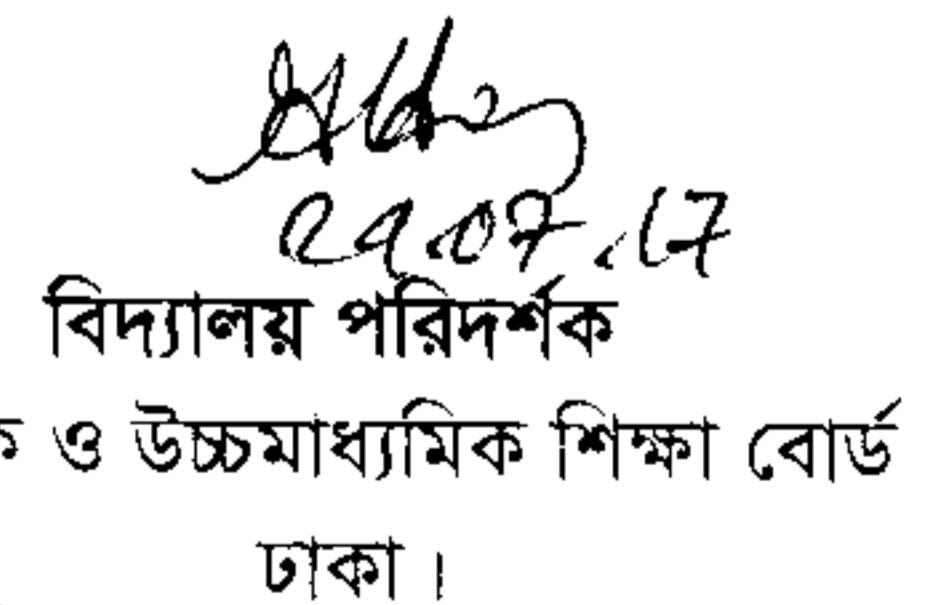 ২৭.০৭.১৭
বিদ্যালয় পরিদর্শক
ক ও উচ্চমাধ্যমিক শিক্ষা বোর্ড
ঢাকা।